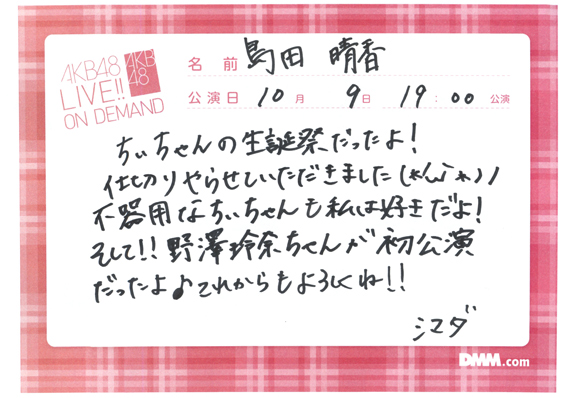 AKB48
LIVE!!
ON DEMAND
AKB
48
名前 島田 晴香
公演日 10月 9日 19:00 公演
ちぃちゃんの生誕祭だったよ!
仕切りやらせていただきました(*^ω^*)ノ
不器用なちぃちゃんも私は好きだよ!
そして!!野澤玲奈ちゃんが初公演
だったよ♪これからもよろしくね!!
シマダ
DMM.com